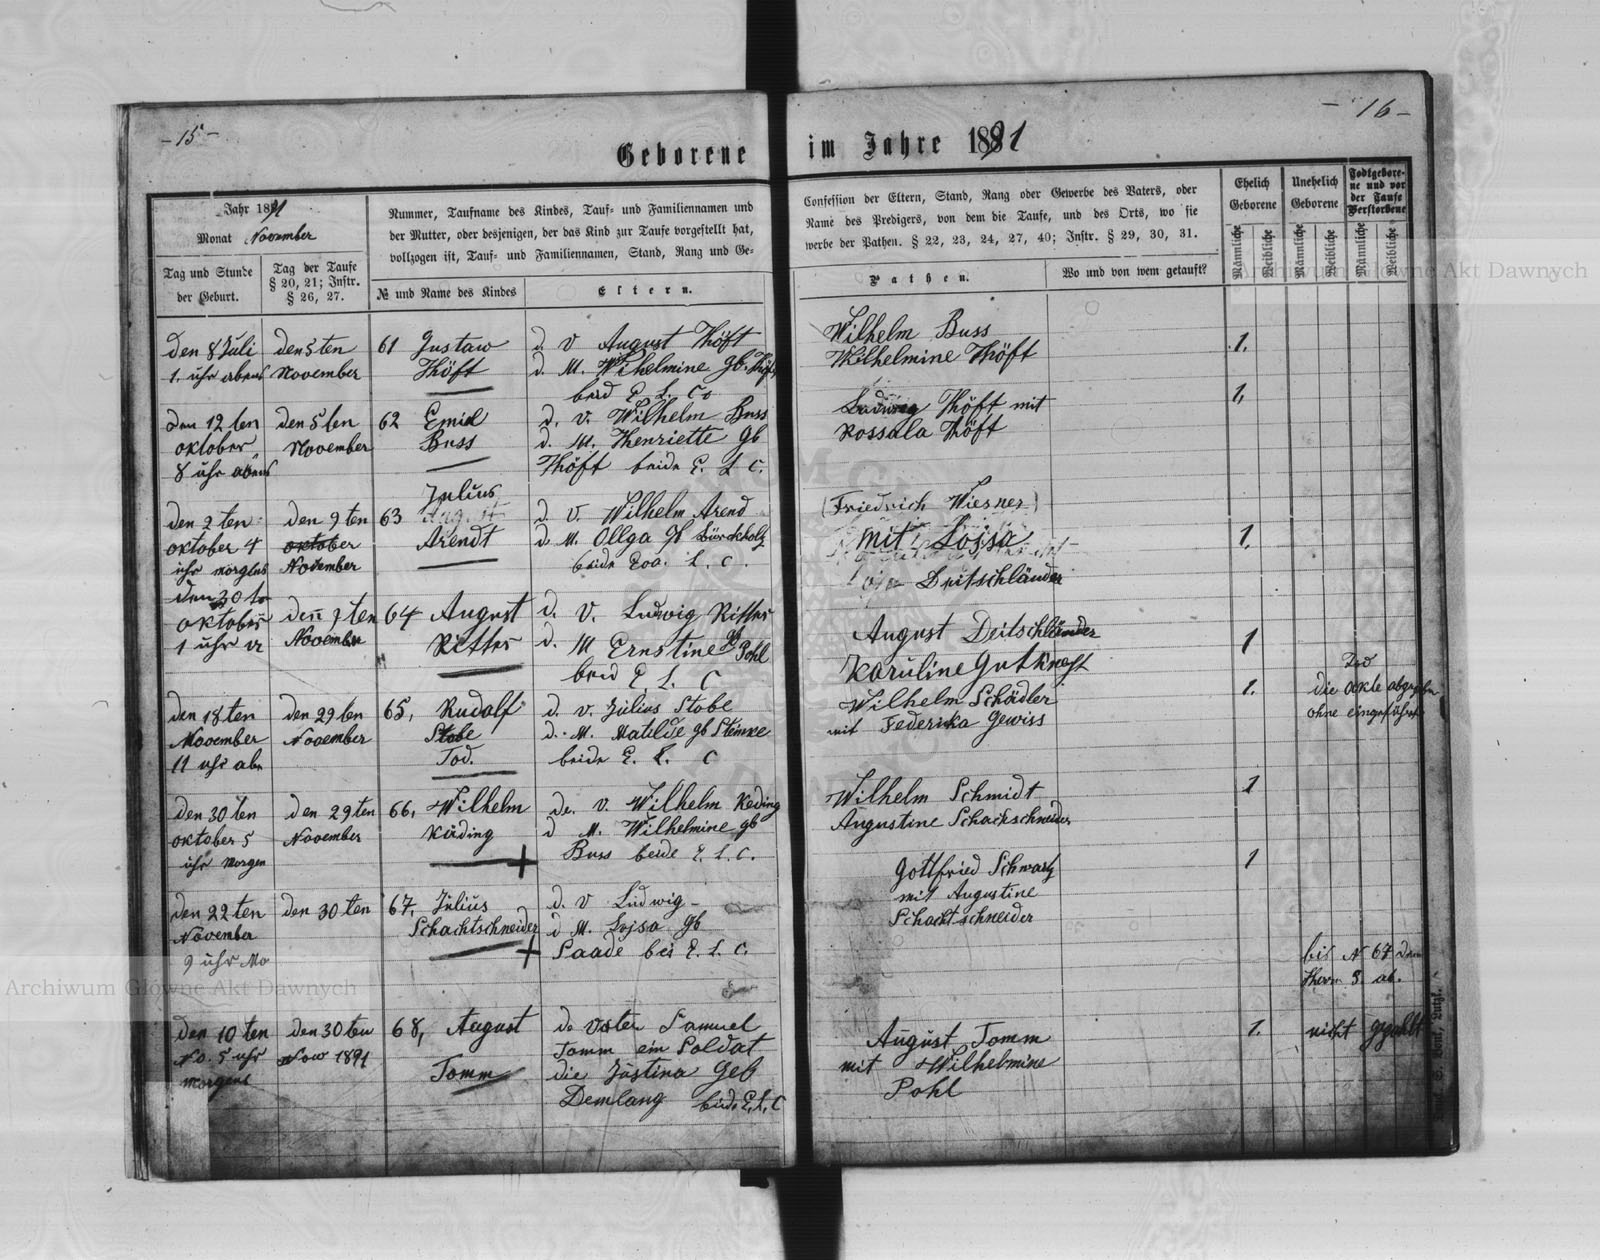 -15-
Geborene
Jahr 1891
Monat November
Tag und Stunde
der Geburt.
Tag der Taufe
§ 20, 21; Instr.
§ 26, 27.
Nummer, Taufname des Kindes, Tauf- und Familiennamen und
der Mutter, oder desjenigen, der das Kind zur Taufe vorgestellt hat,
vollzogen ist, Tauf- und Familiennamen, Stand, Rang und Ge-
№ und Name des Kindes
Eltern.
den 8 Juli
1. uhr abens
den 5 ten
November
61 Gustaw
Thöft
d. V August Thöft
d. M. Wilhelmine gb.
beid E. L. C
den 12 ten
oktober
8 uhr abens
den 5 ten
November
62 Emiel
Buss
d. V. Wilhelm Buss
d. M. Henriette gb
Thöft beide E. L. C.
den 2 ten
oktober 4
uhr morgens
den 9 ten
oktober
November
63 Julius
Arendt
d. V. Wilhelm Arend
d. M. Ollga gb
beide L. C.
den 30 t
oktober
1 uhr
den 9 ten
November
64 August
Ritter
d. V. Ludwig Ritter
d. M Ernstine gb Pohl
beid E L. C
den 18 ten
November
11 uhr abn
den 29 ten
November
65, Rudolf
Stobe
Tod.
d. v. Julius Stobe
d. M. Matilde gb Steinke
beide E. L. C
den 30 ten
oktober 5
uhr Morgen
den 29 ten
November
66, Wilhelm
Käding
de. v. Wilhelm Keding
d M. Wilhelmine gb
Buss beide E. L. C.
den 22 ten
November
9 uhr Mo
den 30 ten
67, Julius
Schachtschneider
d. v Ludwig -
d M. Lojsa gb
Saade bei E. L. C.
den 10 ten
No. 5 uhr
morgens
den 30 ten
Now 1891
68, August
Tomm
de Vater Samuel
Tomm ein Soldat
die Justina geb
Demlang beide E, L, C
-16-
im Jahre 1891
Confession der Eltern, Stand, Rang oder Gewerbe des Vaters, oder
Name des Predigers, von dem die Taufe, und des Orts, wo sie
werbe der Pathen. § 22, 23, 24, 27, 40; Instr. § 29, 30, 31.
Pathen.
Wo und von wem getauft?
Ehelich
Geborene
Unehelich
Geborene
Todtgebore-
ne und vor
der Taufe
Verstorbene
Männliche
Weibliche
Männliche
Weibliche
Männliche
Weibliche
Wilhelm Buss
Wilhelmine Thöft
1.
Ludwig Thöft mit
Rossala Thöft
1,
(Friedrich Wiesner)
mit Lojsa
Deitschländer
1.
August Deitschländer
Karuline Gutknecht
1
Wilhelm Schädler
mit Federika Gewiss
1.
Tod
die Ackte abgegeben
ohne eingeführt
Wilhelm Schmidt
Augustine Schackschneider
1
Gottfried Schwartz
mit Augustine
Schachtschneider
1
bis N 67 dem
Herrn S. ab.
August Tomm
mit Wilhelmine
Pohl
1.
nicht gezahlt
Archiwum Główne Akt Dawnych
Archiwum Główne Akt Dawnych